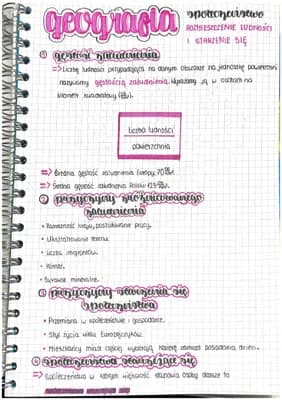 geografia społeczeństwo
ROZMIESZCZENIE LUDNOŚCI
I STARZENIE SIĘ
① gęstość zaludnienia
=> Liczbę ludności przypadającą na danym obszarze na jednostkę powierzchni
nazywamy gęstością zaludnienia. Wyrażamy ją w osobach na
kilometr kwadratowy
liczba ludności
powierzchnia
=> Średnia gęstość zaludnienia Europy: 70
=> Średnia gęstość zaludnienia Polski: 123
② przyczyny zróżnicowanego
zaludnienia
• Zamożność kraju, poszukiwanie pracy.
• Ukształtowanie terenu.
• Liczba imigrantów.
• Klimat.
• Surowce mineralne.
③ przyczyny starzenia się
społeczeństwa
• Przemiana w społeczeństwie i gospodarce.
• Styl życia wielu Europejczyków.
• Mieszkańcy miast częściej wybierają karierę zamiast posiadania dzieci.
④ społeczeństwo starzejące się
=> Społeczeństwo w którym większość stanowią osoby starsze to